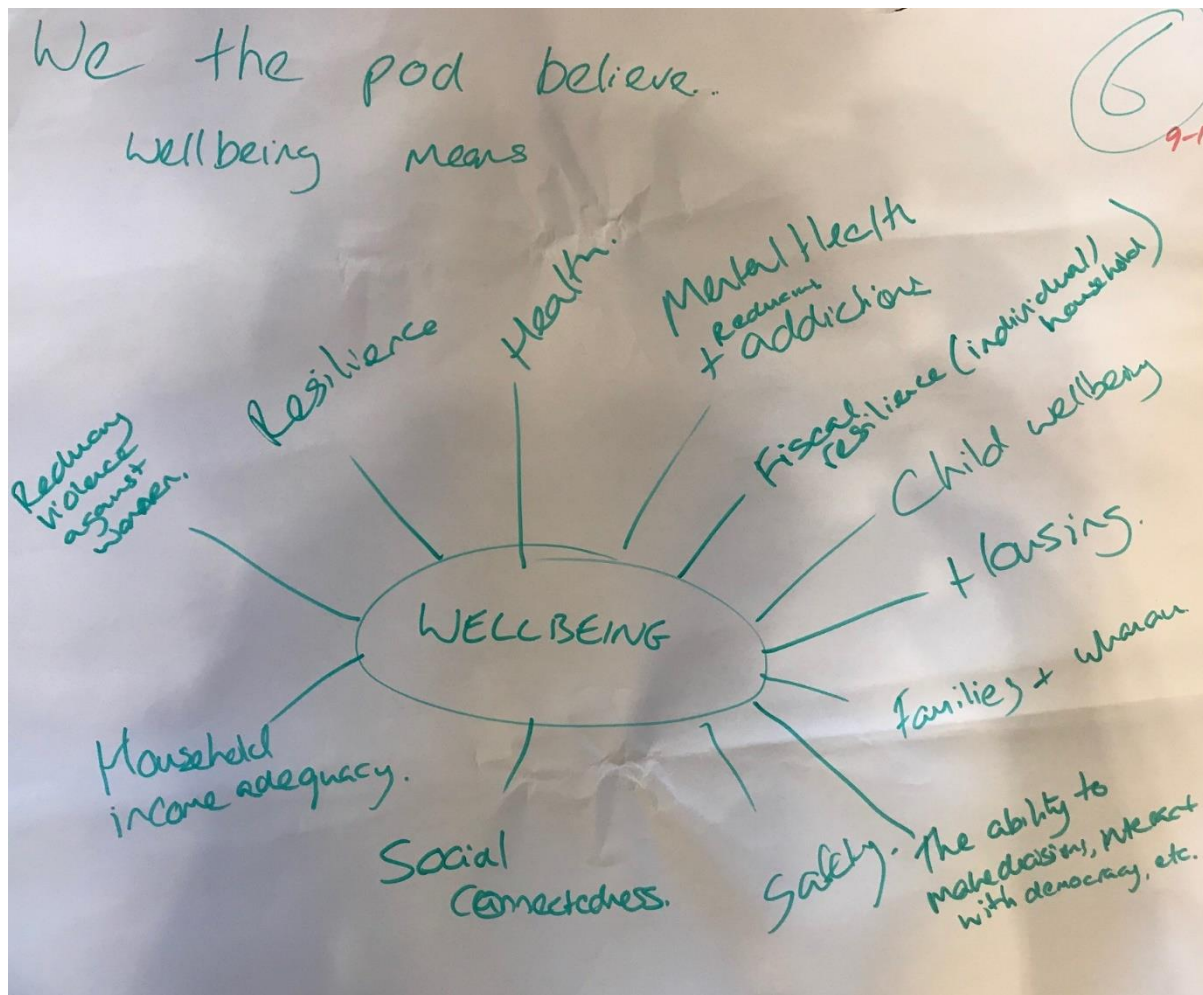 We the pod believe..
Wellbeing means
6
Reducing
violence
against
women.
Resilience
Health.
Mental Health
Reducing
+ addictions
Fiscal
resilience (individual/
household)
Child wellbeing
Housing.
Families + whanau
The ability to
make decisions, interact
with democracy, etc.
Safety.
Social
Connectedness.
Household
income adequacy.
WELLBEING